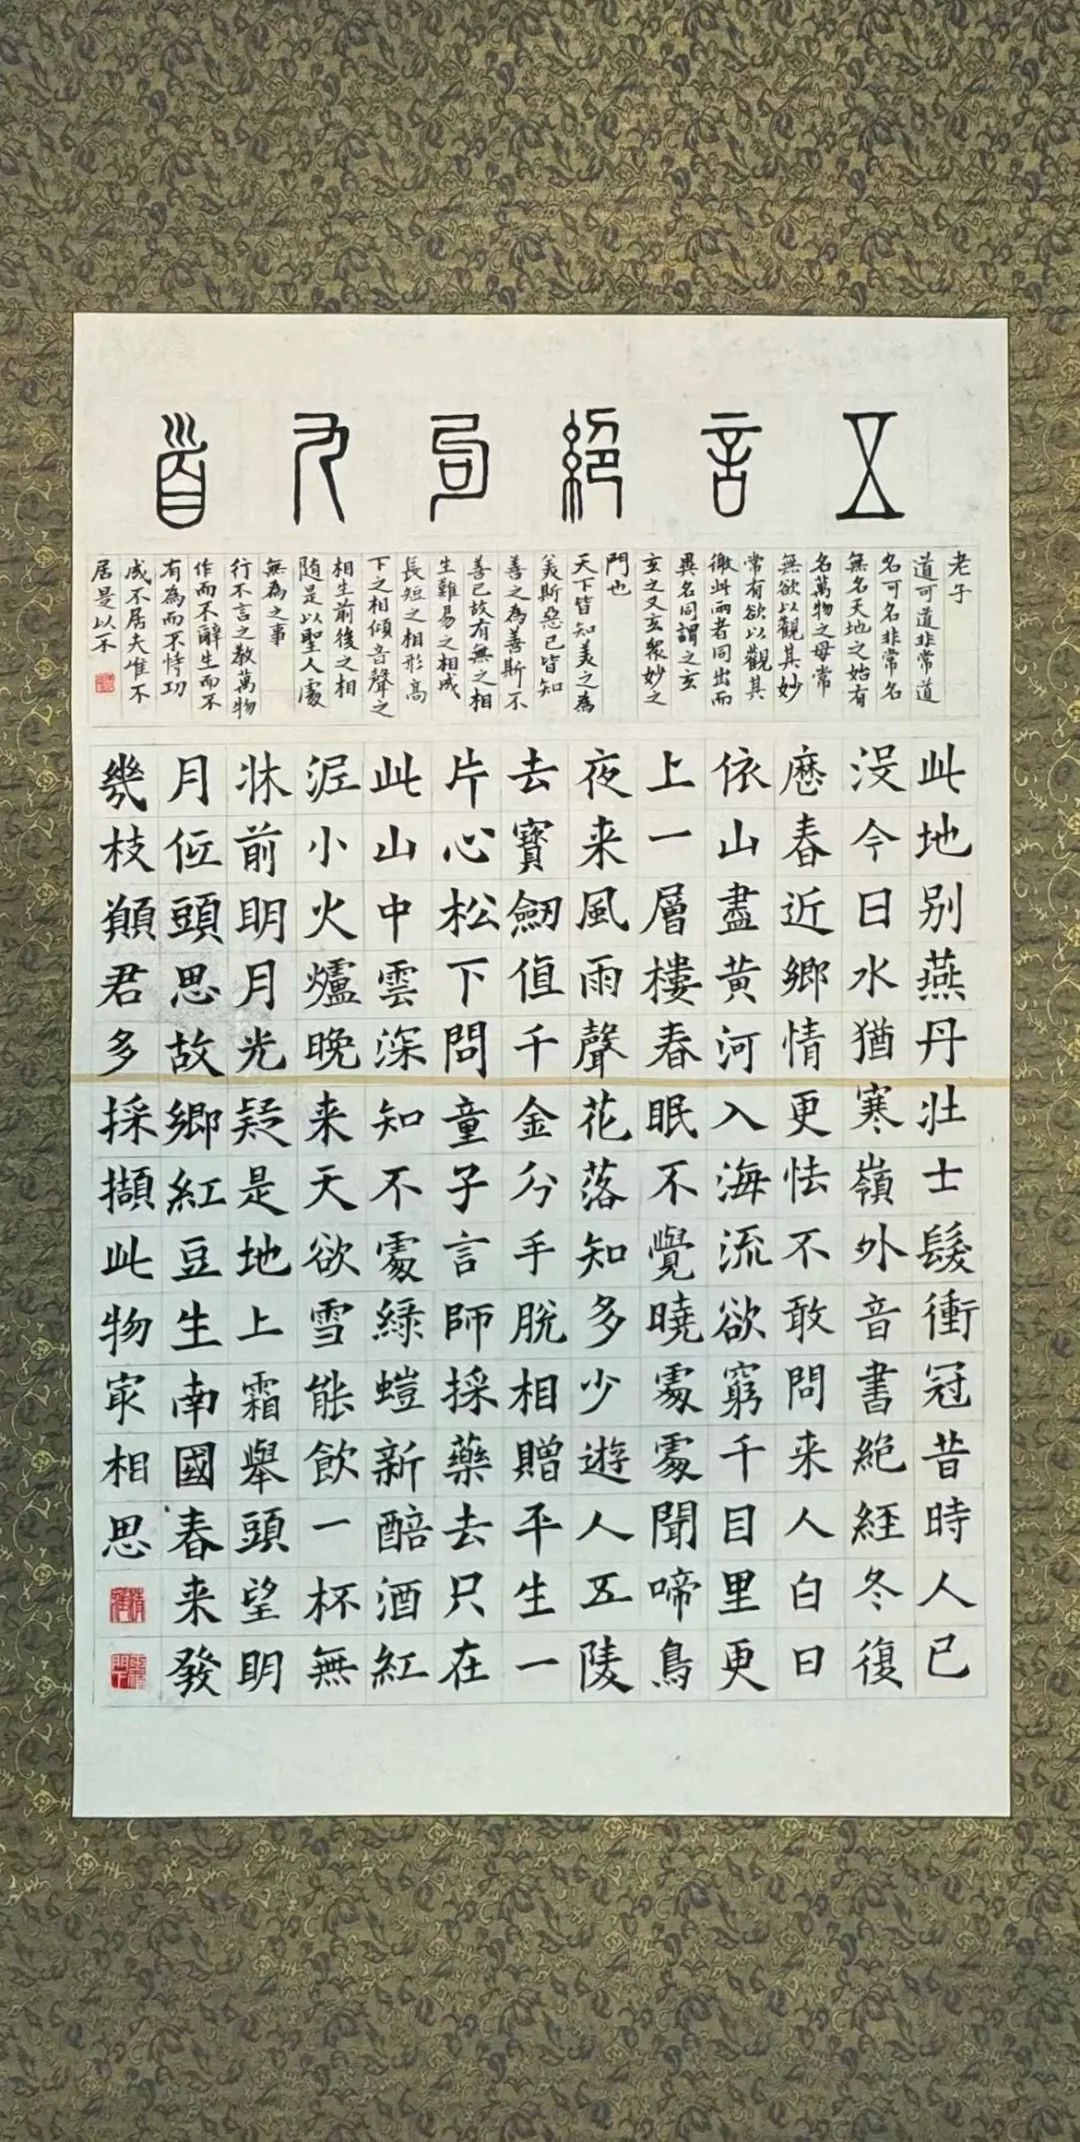 五言絕句九首
老子
道可道非常道
名可名非常名
無名天地之始有
名萬物之母常
無欲以觀其妙
常有欲以觀其
徼此兩者同出而
異名同謂之玄
玄之又玄眾妙之
門也
天下皆知美之為
美斯惡已皆知
善之為善斯不
善已故有無之相
生難易之相成
長短之相形高
下之相傾音聲之
相生前後之相
隨是以聖人處
無為之事
行不言之教萬物
作而不辭生而不
有為而不恃功
成不居夫唯不
居是以不
此地别燕丹壯士髮衝冠昔時人已
沒今日水猶寒嶺外音書絕經冬復
厯春近鄉情更怯不敢問来人白日
依山盡黃河入海流欲窮千目里更
上一層樓春眠不覺曉處處聞啼鳥
夜来風雨聲花落知多少遊人五陵
去寶劒值千金分手脫相贈平生一
片心松下問童子言師採藥去只在
此山中雲深知不處綠螘新醅酒紅
泥小火爐晚来天欲雪能飲一杯無
牀前明月光疑是地上霜舉頭望明
月低頭思故鄉紅豆生南國春来發
幾枝願君多採擷此物冣相思